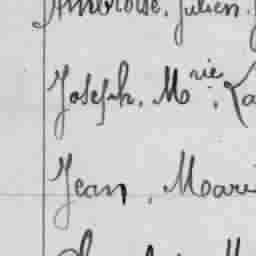 Ambroise, Julien
Joseph, Mrie, La
Jean, Marie